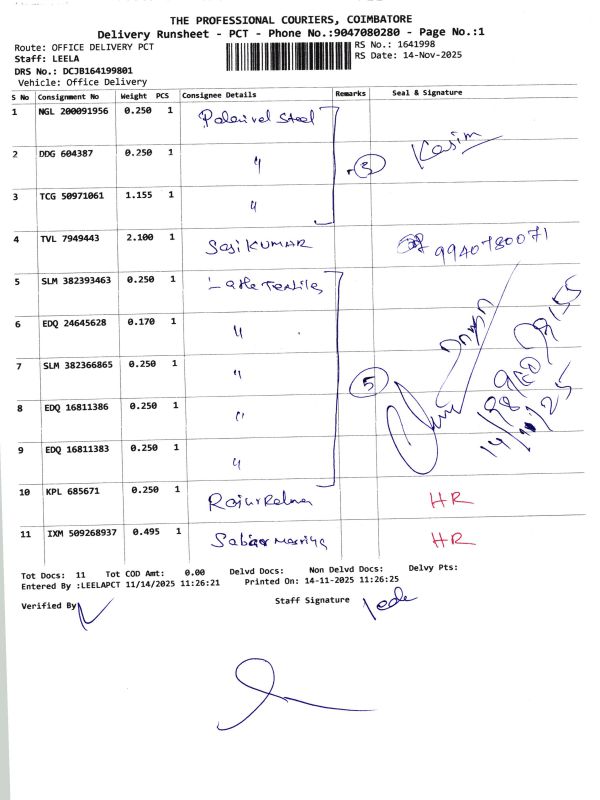 THE PROFESSIONAL COURIERS, COIMBATORE
Delivery Runsheet - PCT - Phone No.:9047080280 - Page No.:1
Route: OFFICE DELIVERY PCT
RS No.: 1641998
Staff: LEELA
RS Date: 14-Nov-2025
DRS No.: DCJB164199801
Vehicle: Office Delivery
S No Consignment No Weight PCS Consignee Details Remarks Seal & Signature
1 NGL 200091956 0.250 1 Steel
2 DDG 604387 0.250 1 " 3 Kasim
3 TCG 50971061 1.155 1 "
4 TVL 7949443 2.100 1 Sasi KUMAR 9940780071
5 SLM 382393463 0.250 1
6 EDQ 24645628 0.170 1 "
7 SLM 382366865 0.250 1 " 5
8 EDQ 16811386 0.250 1 "
9 EDQ 16811383 0.250 1 " 14/11/25
10 KPL 685671 0.250 1 HR
11 IXM 509268937 0.495 1 HR
Tot Docs: 11 Tot COD Amt: 0.00 Delvd Docs: Non Delvd Docs: Delvy Pts:
Entered By :LEELAPCT 11/14/2025 11:26:21 Printed On: 14-11-2025 11:26:25
Verified By Staff Signature